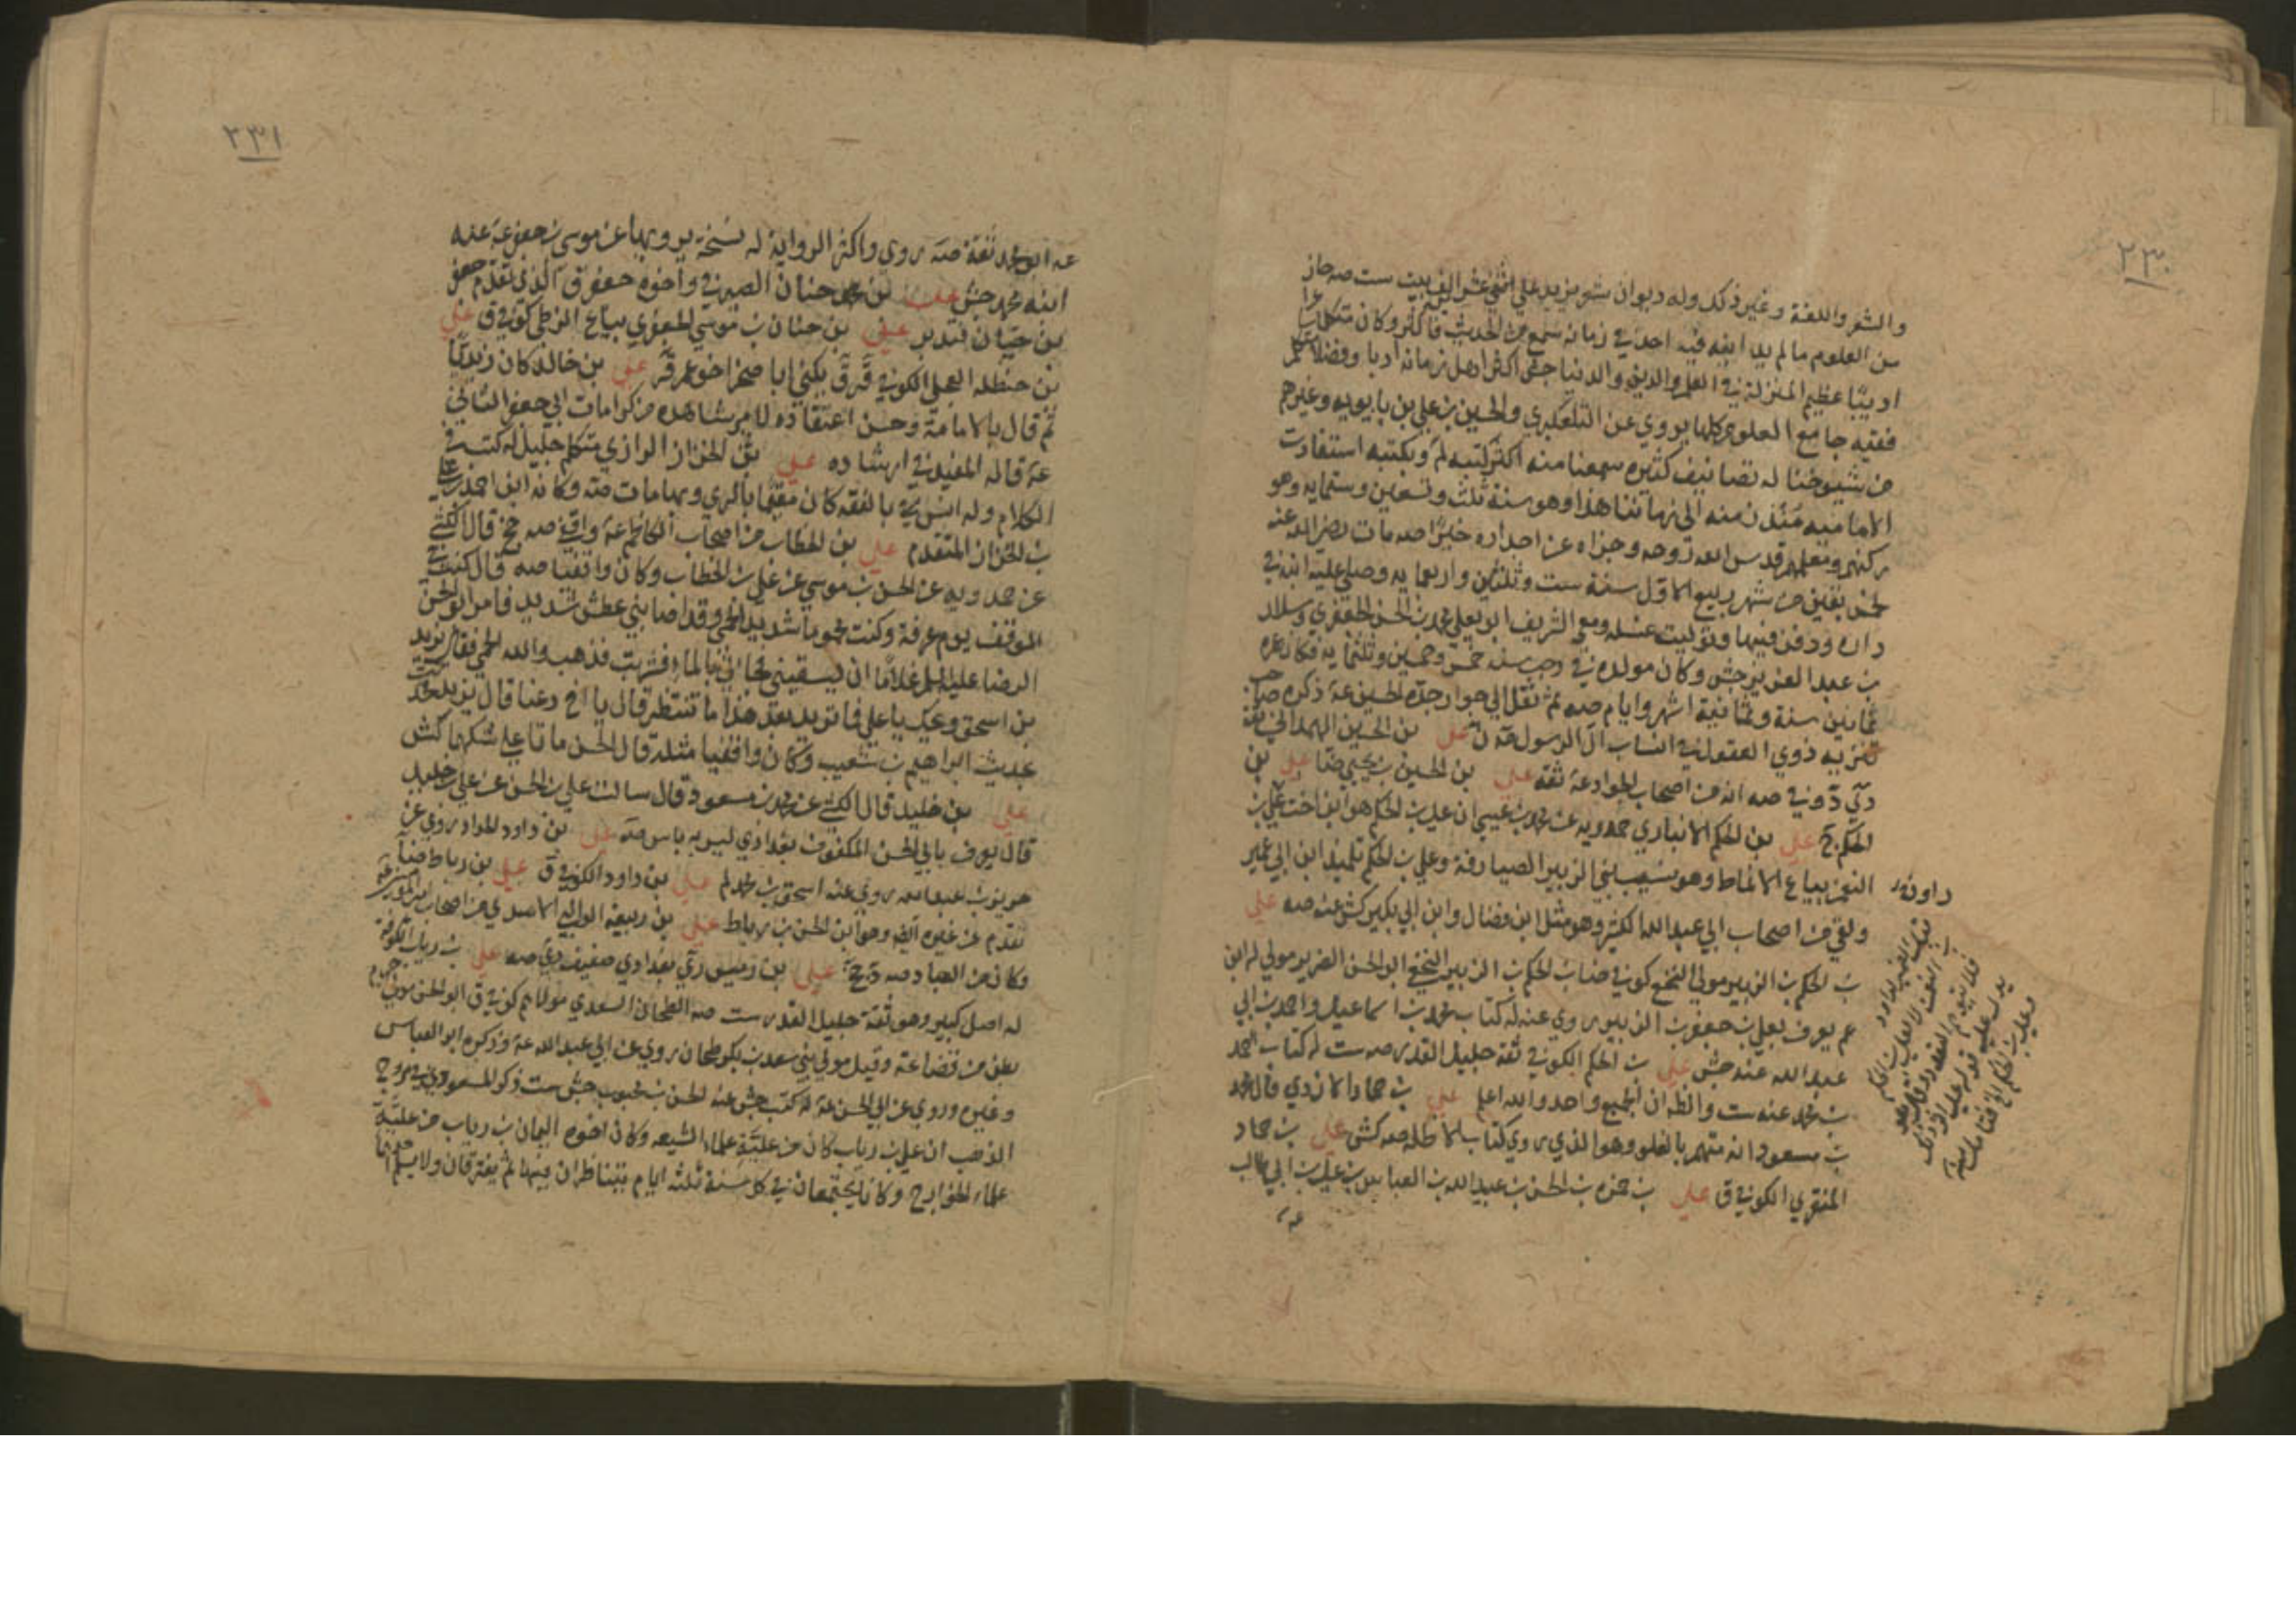 ٢٣٠
والشعر واللغة وغير ذلك وله ديوان شعر يزيد علي اثني عشر الف بيت ست صه حاز
من العلوم ما لم يدانيه فيه احد في زمانه سمع من الحديث فاكثر وكان متكلما شاعرا
اديبا عظيم المنزلة في العلم والدين والدنيا جش اكثر اهل زمانه ادبا وفضلا متكلم
فقيه جامع العلوم كلها يروي عن التلعكبري والحسين بن علي بن بابويه وغيرهم
من شيوخنا له تصانيف كثيره سمعنا منه اكثر كتبه لم وبكتبه استفادت
الامامية منذ زمنه الى زماننا هذا وهو سنة ثلث وتسعين وستمايه وهو
ركنهم ومعلمهم قدس الله روحه وجزاه عن اجداره خيرا صه مات رضي الله عنه
لخمس بقين من شهر ربيع الاول سنة ست وثلثين واربعمايه وصلي عليه ابنه في
داره ودفن فيها وتوليت غسله ومعي الشريف ابو يعلي محمد بن الحسن الجعفري وسلار
بن عبد العزيز جش وكان مولده في رجب سنه خمس وخمسين وثلثمايه فكان عمره
ثمانين سنة وثمانية اشهر وايام صه ثم نقل الي جوار جده الحسين عه ذكره صاحب
تنزيه ذوي العقول في انساب ال الرسول علي بن الحسين الهمداني ثقة
دي وفي صه انه من اصحاب الجواد عه ثقة علي بن الحسين بن يحيي ضا علي بن
الحكم ج علي بن الحكم الانباري حمدويه عن محمد بن عيسي ان علي بن الحكم هو ابن اخت علي بن
النعمن بياع الانماط وهو نسيب بني الزبير الصيارفة وعلي بن الحكم تلميذ ابن ابي عمير
ولقي من اصحاب ابي عبد الله الكثير وهو مثل ابن فضال وابن ابي بكير كش عنه صه علي
بن الحكم بن الزبير مولي النخع كوفي ضا بن الحكم بن الزبير النخعي ابو الحسن الضرير مولي له ابن
عم يعرف بعلي بن جعفر بن الزبير روي عنه له كتاب محمد بن اسماعيل واحمد بن ابي
عبد الله عنه جش علي بن الحكم الكوفي ثقة جليل القدر صه ست له كتاب احمد
بن محمد عنه ست والظ ان الجميع واحد والله اعلم علي بن حماد الازدي قال محمد
بن مسعود انه متهم بالغلو وهو الذي روي كتاب الاظله صه كش علي بن حماد
المنقري الكوفي ق علي بن حمزه بن الحسن بن عبيد الله بن العباس بن علي بن ابي طالب
عه
٢٣١
عه ابو محمد ثقة صه روي واكثر الرواية له نسخة يرويها عن موسي بن جعفر عه عنه
ابنه محمد جش علي بن حنان الصيرفي واخوه جعفر ق الذي تقدم جعفر
بن حيان فتدبر علي بن حنان بن موسي الجعفري بياع الزطي كوفي ق علي
بن حنظله العجلي الكوفي ق ق يكني ابا صخر اخو عمر ق علي بن خالد كان زيديا
ثم قال بالامامة وحسن اعتقاده لامر شاهده من كرامات ابي جعفر الثاني
عه قاله المفيد في ارشاده علي بن الخزاز الرازي متكلم جليل له كتب في
الكلام وله انس بالفقه كان مقيما بالري وبها مات صه وكانه ابن احمد بن علي
بن الخزاز المتقدم علي بن الخطاب من اصحاب الكاظم عه واقفي صه جخ قال الكشي
عن حمدويه عن الحسن بن موسي عن علي بن الخطاب وكان واقفيا صه قال كنت في
الموقف يوم عرفة وكنت محموما شديد الحمي وقد اصابني عطش شديد فامر ابو الحسن
الرضا عليه السلم غلاما ان يسقيني فجاءني بالماء فشربت فذهب والله الحمي فقال يزيد
بن اسحق ويحك يا علي فما تريد بعد هذا ما تنتظر قال يا اخي دعنا قال يزيد فحدثت
بحديث ابراهيم بن شعيب وكان واقفيا مثله قال الحسن ماتا علي شكهما كش
علي بن خليد قال الكشي عن محمد بن مسعود قال سالت علي بن الحسن عن علي بن خليد
قال يعرف بابي الحسن المكفوف بغدادي ليس به باس صه علي بن داود الحداد روي عن
حريز بن عبد الله روي عنه اسحق بن محمد لم علي بن داود الكوفي ق علي بن رباط ضا
تقدم عن غيره انه وهو ابن الحسن بن رباط علي بن ربيعة الوالبي الاسدي من اصحاب امير المؤمنين عه
وكان من العباد صه علي بن رميس بغدادي ضعيف صه علي بن رباب الكوفي
له اصل كبير وهو ثقة جليل القدر ست صه الطحان السعدي مولاهم كوفي ق ابو الحسن مولي جرم
بطن من قضاعة وقيل مولي بني سعد بن بكر طحان روي عن ابي عبد الله عه وذكره ابو العباس
وغيره وروي عن ابي الحسن عه له كتب جش عنه الحسن بن محبوب جش ست ذكر المسعودي في مروج
الذهب ان علي بن رباب كان من علية علماء الشيعه وكان اخوه اليمان بن رباب من علية
علماء الخوارج وكانا يجتمعان في كل سنة ثلثه ايام يتناظران فيها ثم يفترقان ولا يسلم احدهما